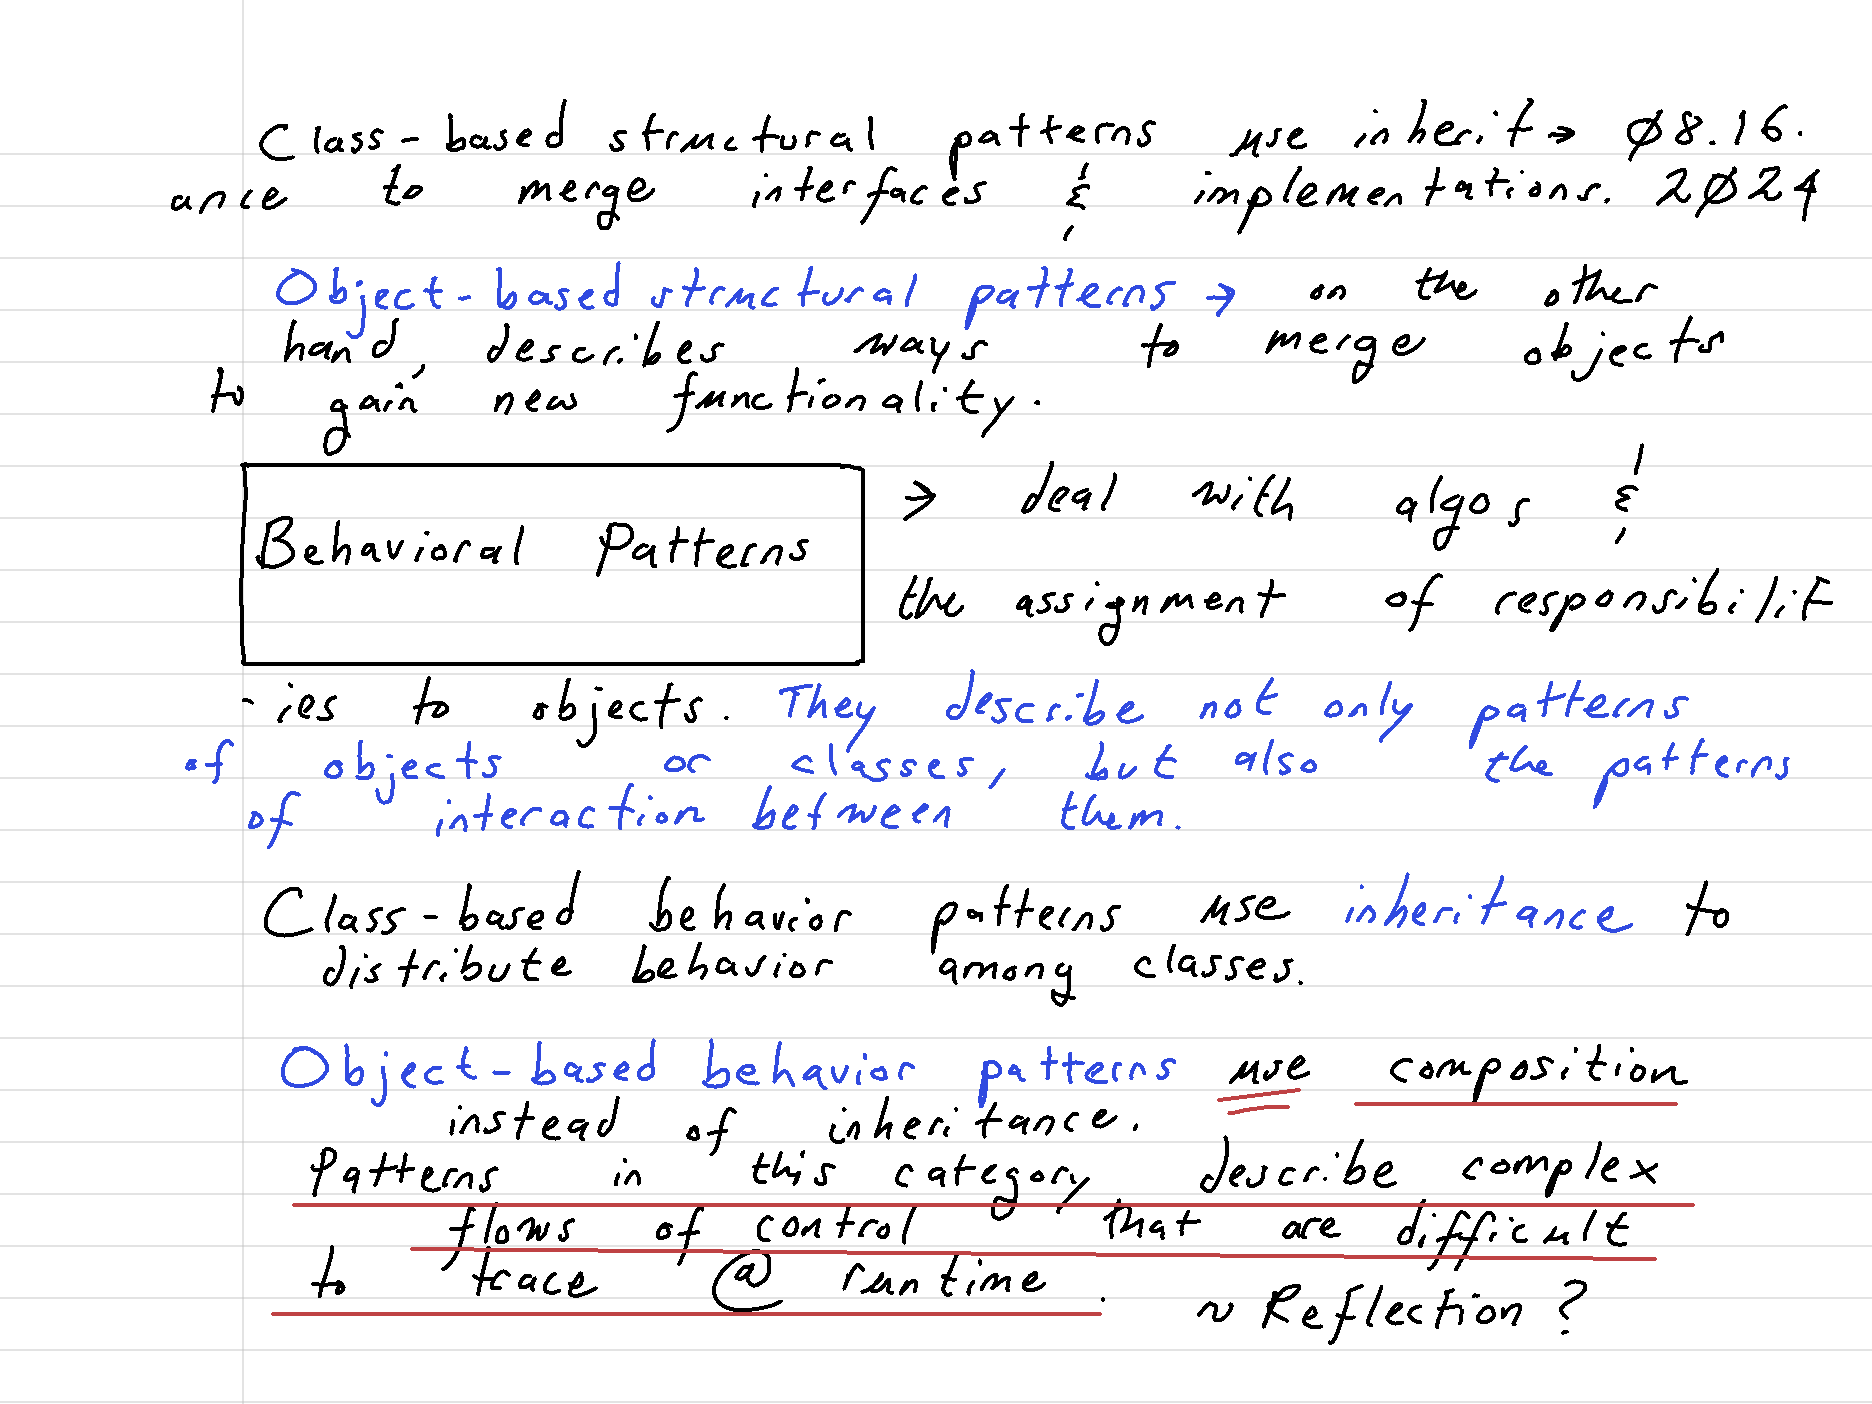 Class-based structural patterns use inherit→ Ø8.16.
ance to merge interfaces & implementations. 2Ø24
Object-based structural patterns → on the other
hand, describes ways to merge objects
to gain new functionality.
Behavioral Patterns → deal with algos &
the assignment of responsibilit
-ies to objects. They describe not only patterns
of objects or classes, but also the patterns
of interaction between them.
Class-based behavior patterns use inheritance to
distribute behavior among classes.
Object-based behavior patterns use composition
instead of inheritance.
Patterns in this category describe complex
flows of control that are difficult
to trace @ runtime. ~ Reflection?